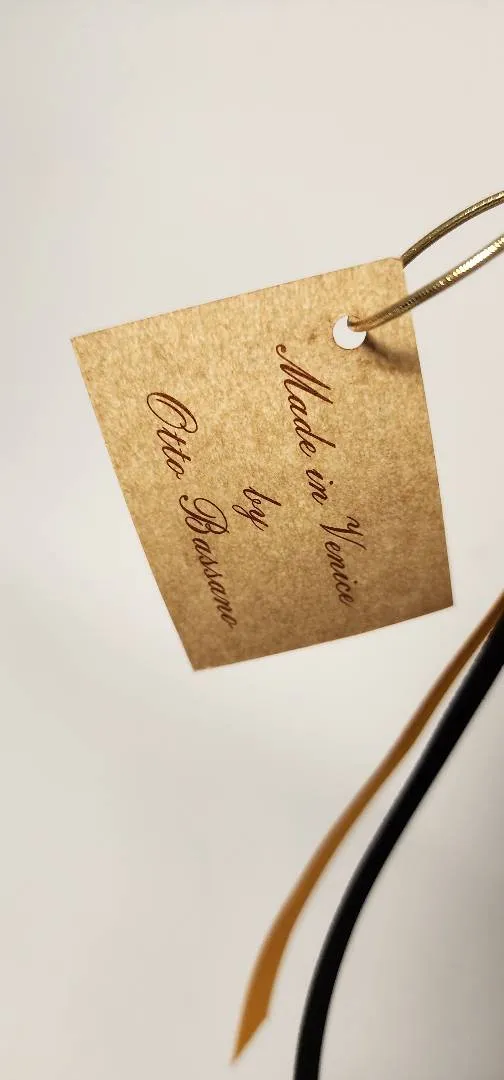 Made in Venice
by
Otto Bassano